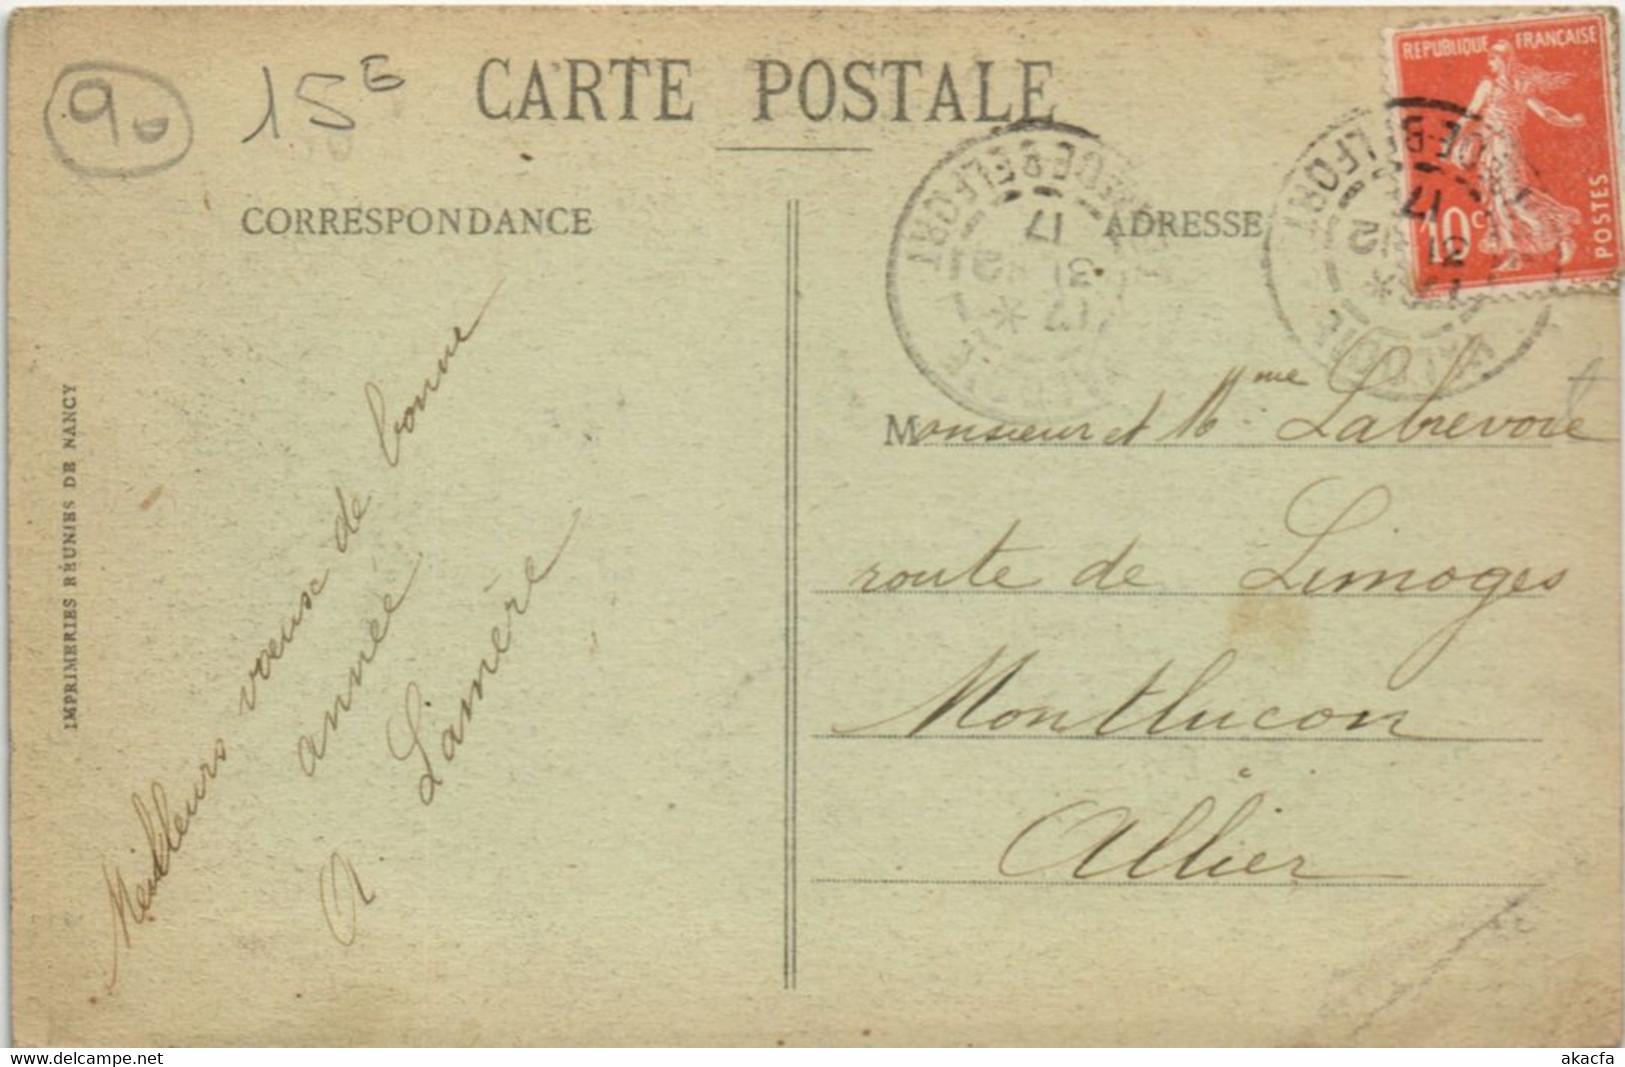 90
15E
CARTE POSTALE
CORRESPONDANCE
ADRESSE
REPUBLIQUE FRANCAISE
10c
POSTES
DE-BELFORT
17
31
12
17
DE-BELFORT
17
12
IMPRIMERIES RÉUNIES DE NANCY
Meilleurs voeuse de bonne
année
A Lamère
Monsieur et Mme Labrevoie
route de Limoges
Montlucon
Allier
delcampe.net
akacfa